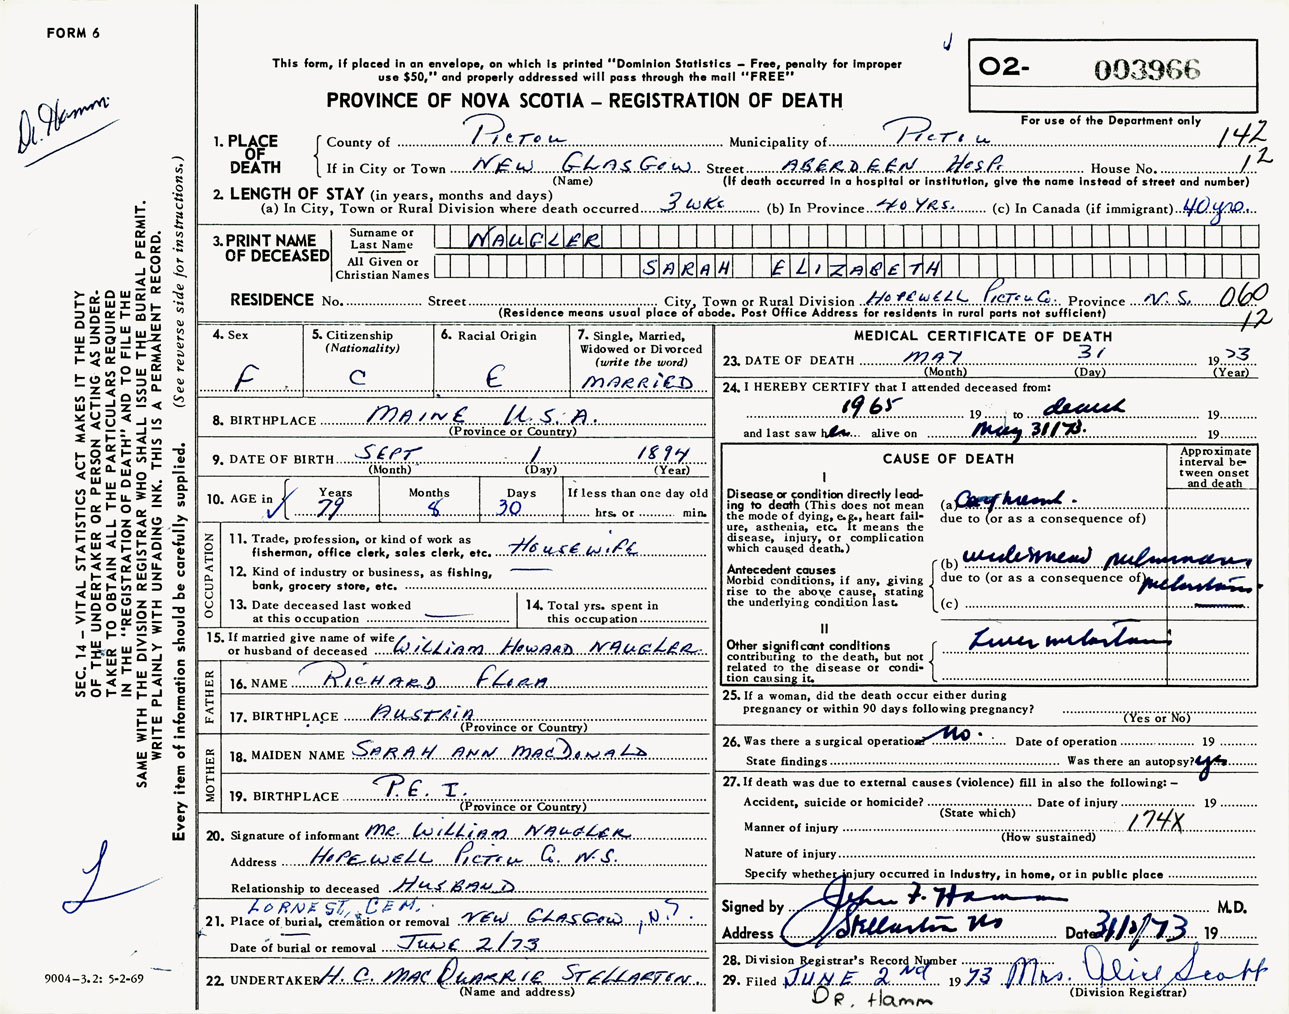 FORM 6
This form, if placed in an envelope, on which is printed "Dominion Statistics – Free, penalty for improper
use $50," and properly addressed will pass through the mail "FREE"
O2- 003966
PROVINCE OF NOVA SCOTIA – REGISTRATION OF DEATH
For use of the Department only
Dr. Hamm
1. PLACE OF DEATH
County of PICTOU Municipality of PICTOU 142
If in City or Town NEW GLASGOW Street ABERDEEN HOSP. House No. 12
(Name) (If death occurred in a hospital or institution, give the name instead of street and number)
2. LENGTH OF STAY (in years, months and days)
(a) In City, Town or Rural Division where death occurred 3 WKS (b) In Province 40 YRS. (c) In Canada (if immigrant) 40 yrs.
3. PRINT NAME OF DECEASED
Surname or Last Name NAUGLER
All Given or Christian Names SARAH ELIZABETH
RESIDENCE No. Street City, Town or Rural Division HOPEWELL PICTOU Co. Province N.S. 060
(Residence means usual place of abode. Post Office Address for residents in rural parts not sufficient) 12
4. Sex F
5. Citizenship (Nationality) C
6. Racial Origin E
7. Single, Married, Widowed or Divorced (write the word) MARRIED
8. BIRTHPLACE MAINE U.S.A.
(Province or Country)
9. DATE OF BIRTH SEPT 1 1894
(Month) (Day) (Year)
10. AGE in ✓ Years 79 Months 8 Days 30 If less than one day old
hrs. or min.
OCCUPATION
11. Trade, profession, or kind of work as
fisherman, office clerk, sales clerk, etc. HOUSEWIFE
12. Kind of industry or business, as fishing,
bank, grocery store, etc.
13. Date deceased last worked
at this occupation
14. Total yrs. spent in
this occupation
15. If married give name of wife
or husband of deceased WILLIAM HOWARD NAUGLER
FATHER
16. NAME RICHARD FLORA
17. BIRTHPLACE AUSTRIA
(Province or Country)
MOTHER
18. MAIDEN NAME SARAH ANN MACDONALD
19. BIRTHPLACE P.E.I.
(Province or Country)
20. Signature of informant MR. WILLIAM NAUGLER
Address HOPEWELL PICTOU Co. N.S.
Relationship to deceased HUSBAND
LORNE ST. CEM.
21. Place of burial, cremation or removal NEW GLASGOW, N.S.
Date of burial or removal JUNE 2/73
22. UNDERTAKER H. C. MACQUARRIE STELLARTON.
(Name and address)
MEDICAL CERTIFICATE OF DEATH
23. DATE OF DEATH MAY 31 1973
(Month) (Day) (Year)
24. I HEREBY CERTIFY that I attended deceased from:
1965 19 to death 19
and last saw her alive on May 31/73. 19
CAUSE OF DEATH
Approximate interval between onset and death
I
Disease or condition directly lead-
ing to death (This does not mean
the mode of dying, e.g., heart fail-
ure, asthenia, etc. It means the
disease, injury, or complication
which caused death.)
(a)
due to (or as a consequence of)
Antecedent causes
Morbid conditions, if any, giving
rise to the above cause, stating
the underlying condition last.
(b) widespread pulmonary
due to (or as a consequence of) metastasis
(c)
II
Other significant conditions
contributing to the death, but not
related to the disease or condi-
tion causing it.
Liver metastasis
25. If a woman, did the death occur either during
pregnancy or within 90 days following pregnancy?
(Yes or No)
26. Was there a surgical operation No. Date of operation 19
State findings Was there an autopsy? yes
27. If death was due to external causes (violence) fill in also the following: –
Accident, suicide or homicide? Date of injury 19
(State which)
Manner of injury 174X
(How sustained)
Nature of injury
Specify whether injury occurred in industry, in home, or in public place
Signed by John F. Hamm M.D.
Address Stellarton NS Date 31/5/73 19
28. Division Registrar's Record Number
29. Filed JUNE 2nd 1973 Mrs. Alice Scott
(Division Registrar)
DR. Hamm
SEC. 14 – VITAL STATISTICS ACT MAKES IT THE DUTY
OF THE UNDERTAKER OR PERSON ACTING AS UNDER-
TAKER TO OBTAIN ALL THE PARTICULARS REQUIRED
IN THE "REGISTRATION OF DEATH" AND TO FILE THE
SAME WITH THE DIVISION REGISTRAR WHO SHALL ISSUE THE BURIAL PERMIT.
WRITE PLAINLY WITH UNFADING INK. THIS IS A PERMANENT RECORD.
Every item of information should be carefully supplied. (See reverse side for instructions.)
L
9004-3.2: 5-2-69